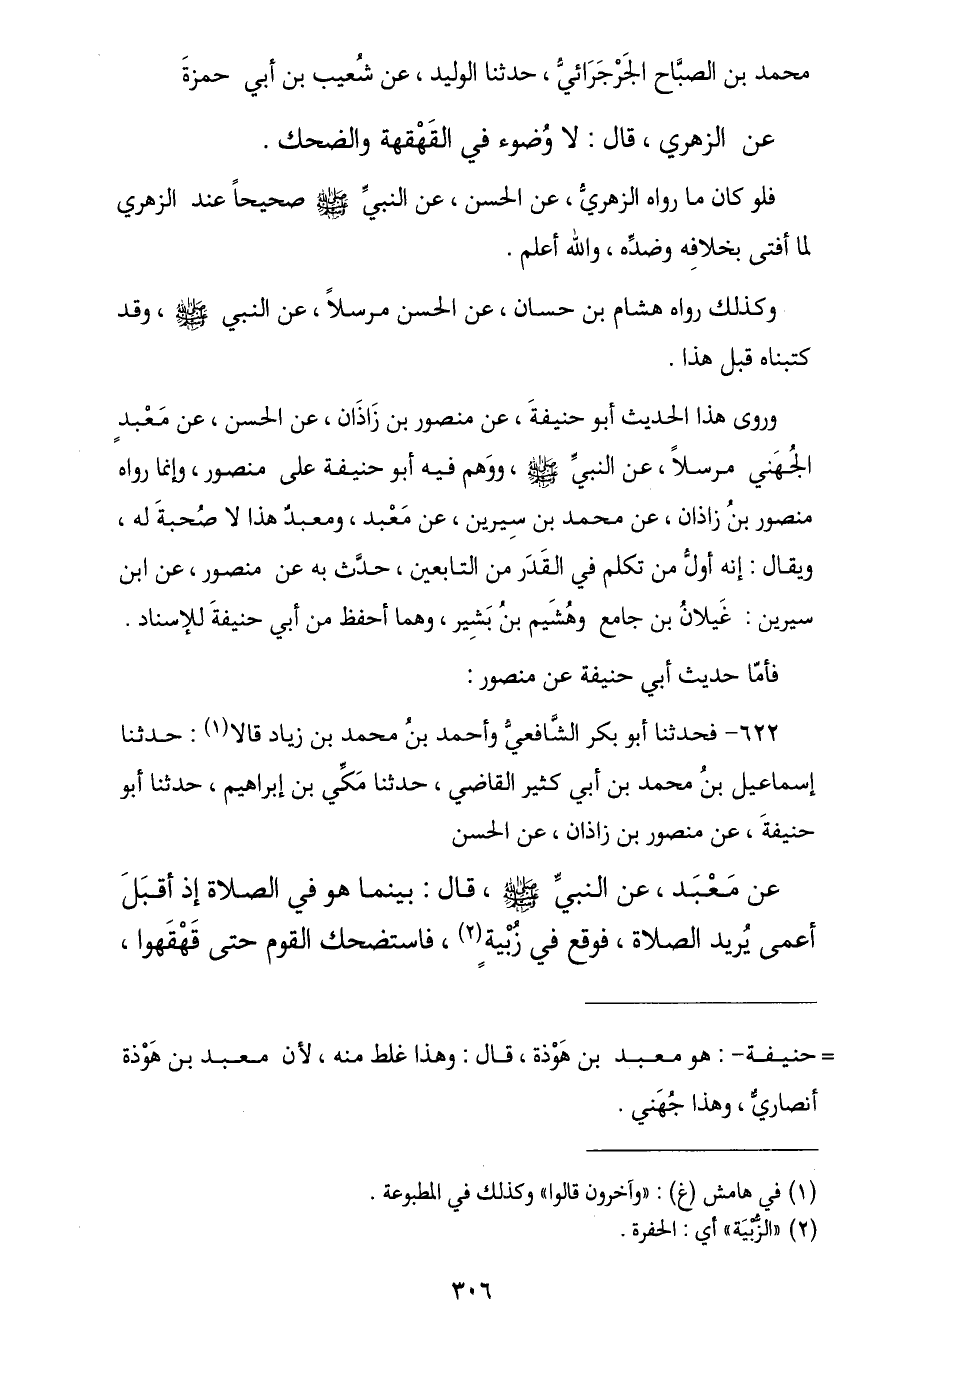 محمد بن الصبَّاح الجَرْجَرَائيُّ ، حدثنا الوليد ، عن شُعيب بن أبي حمزةَ
عن الزهري ، قال : لا وُضوء في القَهْقهة والضحك .
فلو كان ما رواه الزهريُّ ، عن الحسن ، عن النبيِّ ﷺ صحيحاً عند الزهري
لما أفتى بخلافِه وضدِّه ، والله أعلم .
وكذلك رواه هشام بن حسان ، عن الحسن مرسلاً ، عن النبي ﷺ ، وقد
كتبناه قبل هذا .
وروى هذا الحديث أبو حنيفةَ ، عن منصور بن زَاذَان ، عن الحسن ، عن مَعْبدٍ
الجُهَني مرسلاً ، عن النبيِّ ﷺ ، ووَهم فيه أبو حنيفة على منصور ، وإنما رواه
منصور بنُ زاذان ، عن محمد بن سِيرين ، عن مَعْبد ، ومعبدٌ هذا لا صُحبةَ له ،
ويقال : إنه أولُ من تكلم في القَدَر من التابعين ، حدَّث به عن منصور ، عن ابن
سيرين : غَيلانُ بن جامع وهُشَيم بنُ بَشِير ، وهما أحفظ من أبي حنيفةَ للإسناد .
فأمّا حديث أبي حنيفة عن منصور :
٦٢٢- فحدثنا أبو بكر الشَّافعيُّ وأحمد بنُ محمد بن زياد قالا(١) : حدثنا
إسماعيل بنُ محمد بن أبي كثير القاضي ، حدثنا مَكِّي بن إبراهيم ، حدثنا أبو
حنيفةَ ، عن منصور بن زاذان ، عن الحسن
عن مَعْبَد ، عن النبيِّ ﷺ ، قال : بينما هو في الصلاة إذ أقبَلَ
أعمى يُريد الصلاة ، فوقع في زُبْيةٍ(٢) ، فاستضحك القوم حتى قَهْقَهوا ،
= حنيفة- : هو معبد بن هَوْذة ، قال : وهذا غلط منه ، لأن معبد بن هَوْذة
أنصاريٌّ ، وهذا جُهَني .
(١) في هامش (غ) : «وآخرون قالوا» وكذلك في المطبوعة .
(٢) «الزُّبْيَة» أي : الحفرة .
٣٠٦